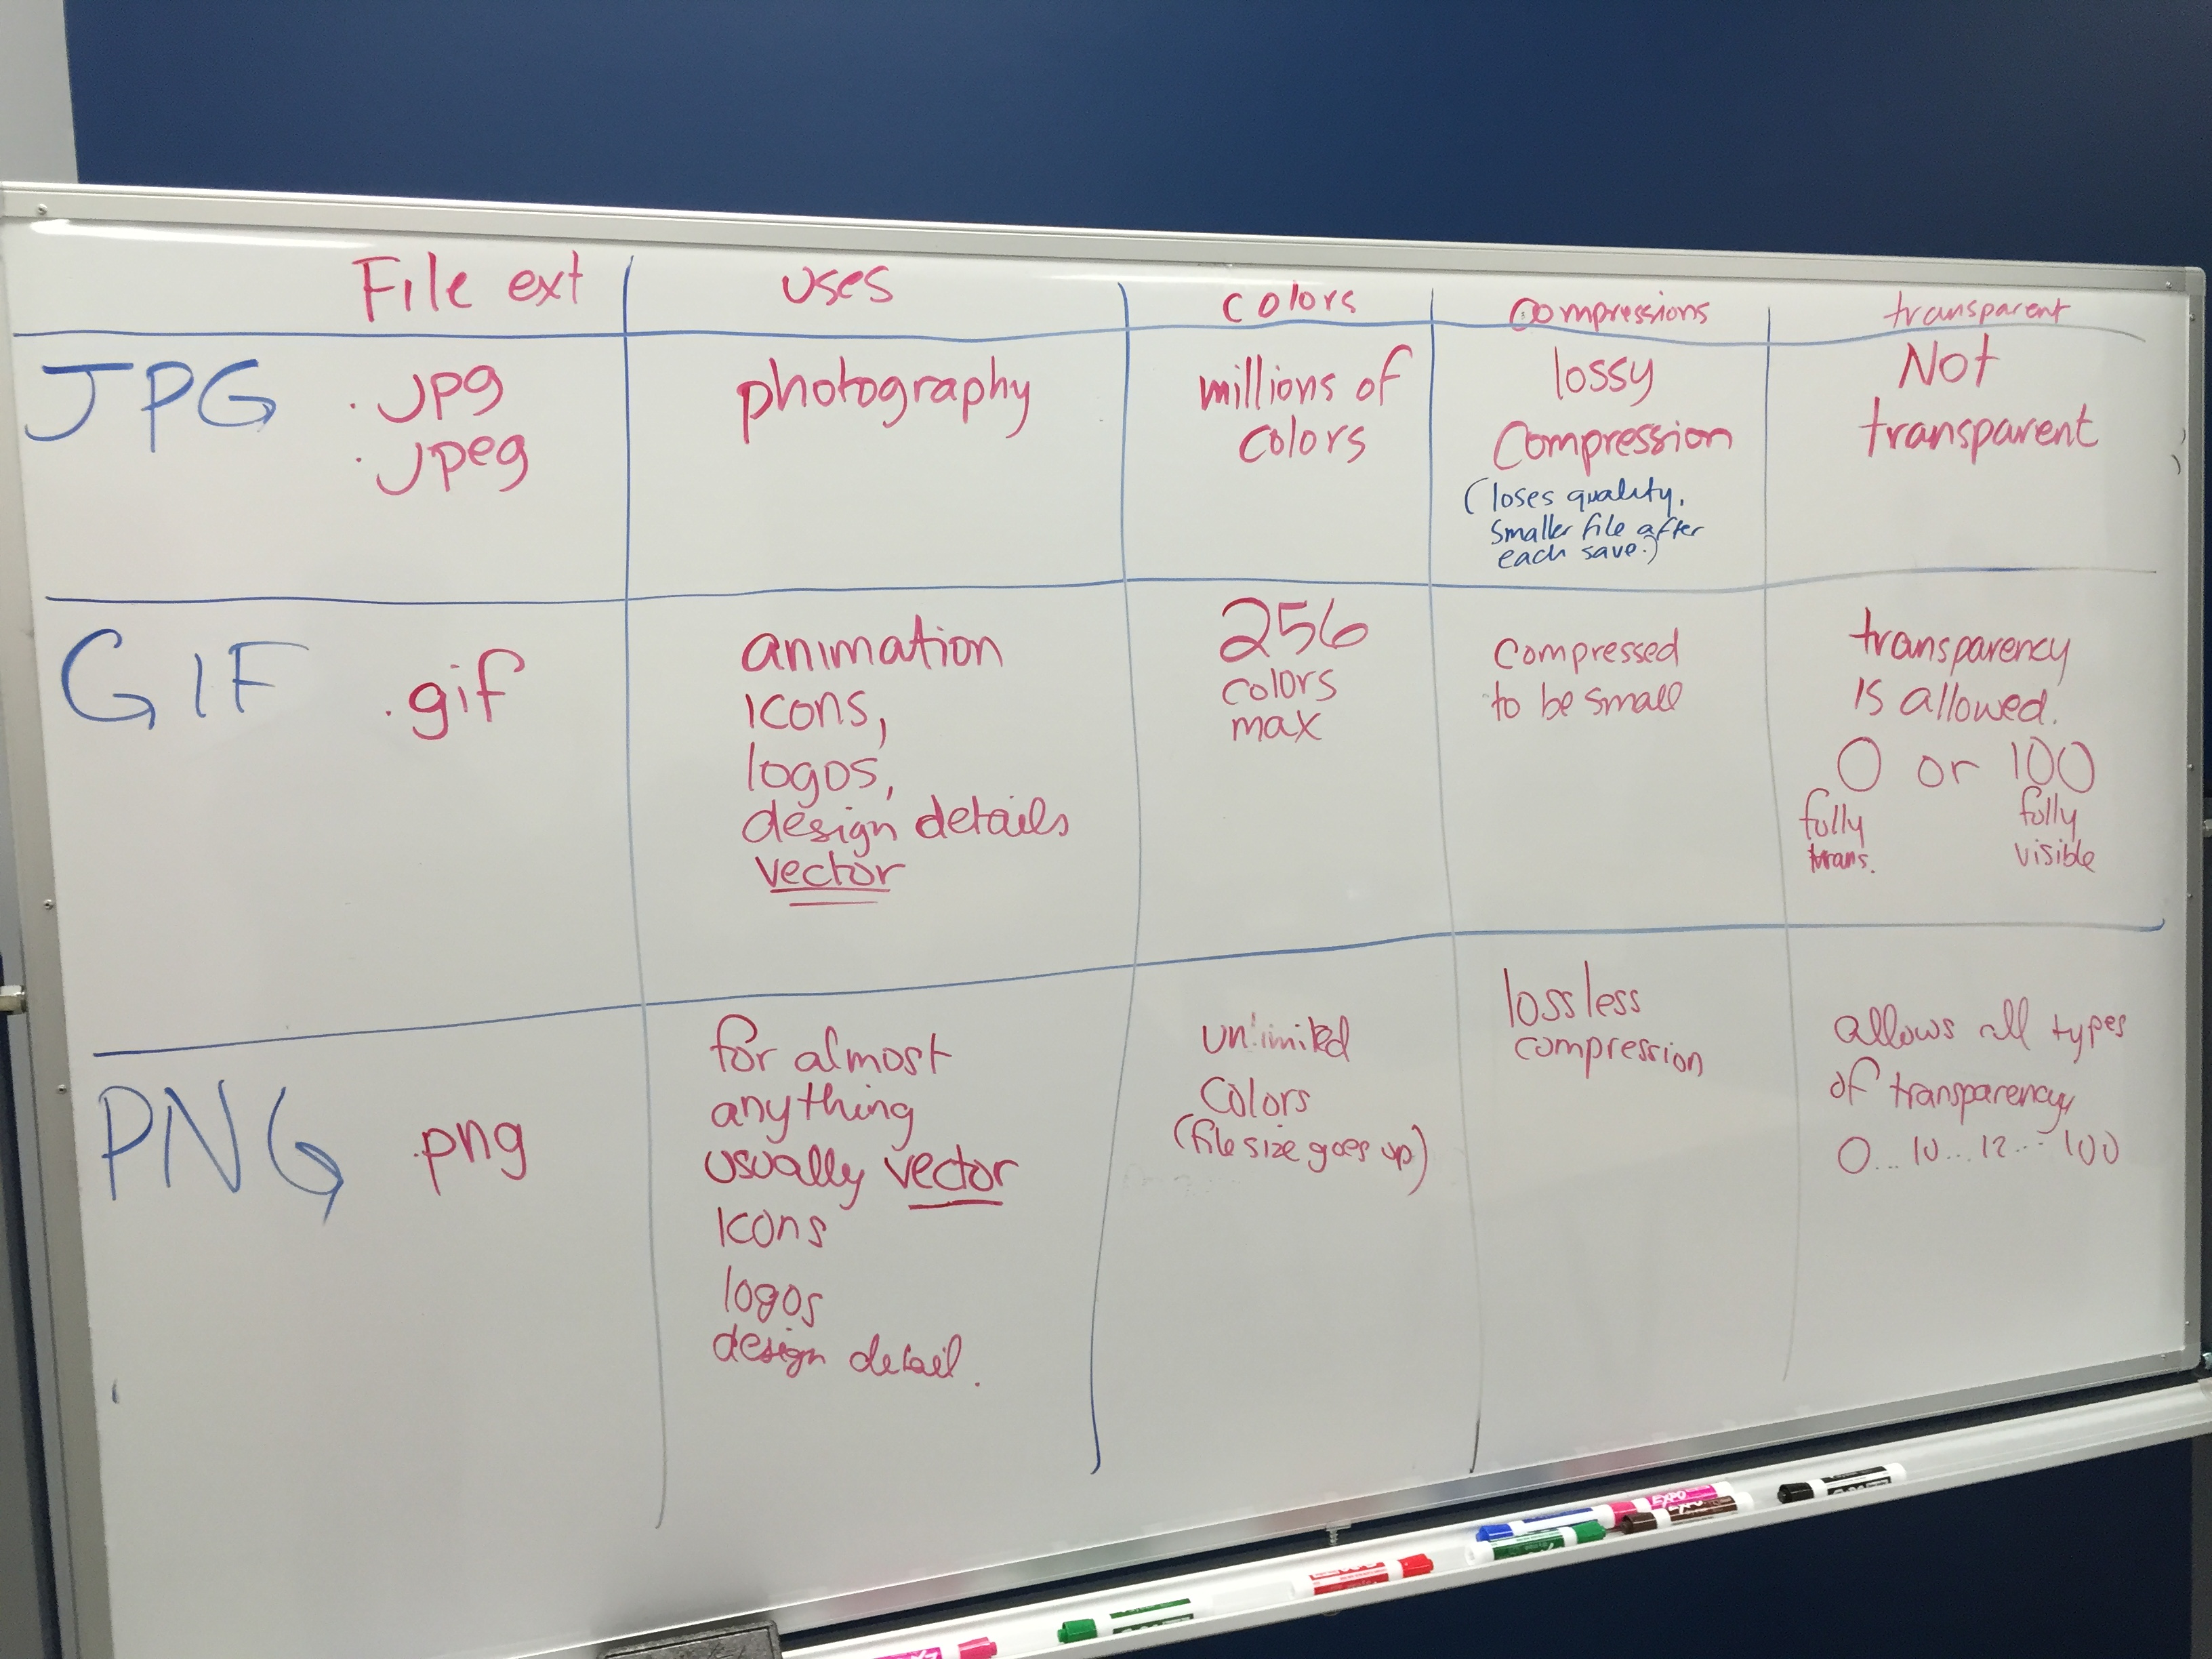 File ext
uses
colors
compressions
transparent
JPG
.jpg
.jpeg
photography
millions of
colors
lossy
compression
(loses quality,
smaller file after
each save.)
Not
transparent
GIF
.gif
animation
icons,
logos,
design details
vector
256
colors
max
compressed
to be small
transparency
is allowed.
0 or 100
fully
trans.
fully
visible
PNG
.png
for almost
anything
usually vector
icons
logos
design detail.
unlimited
colors
(file size goes up)
lossless
compression
allows all types
of transparency
0... 10... 12... 100
EXPO